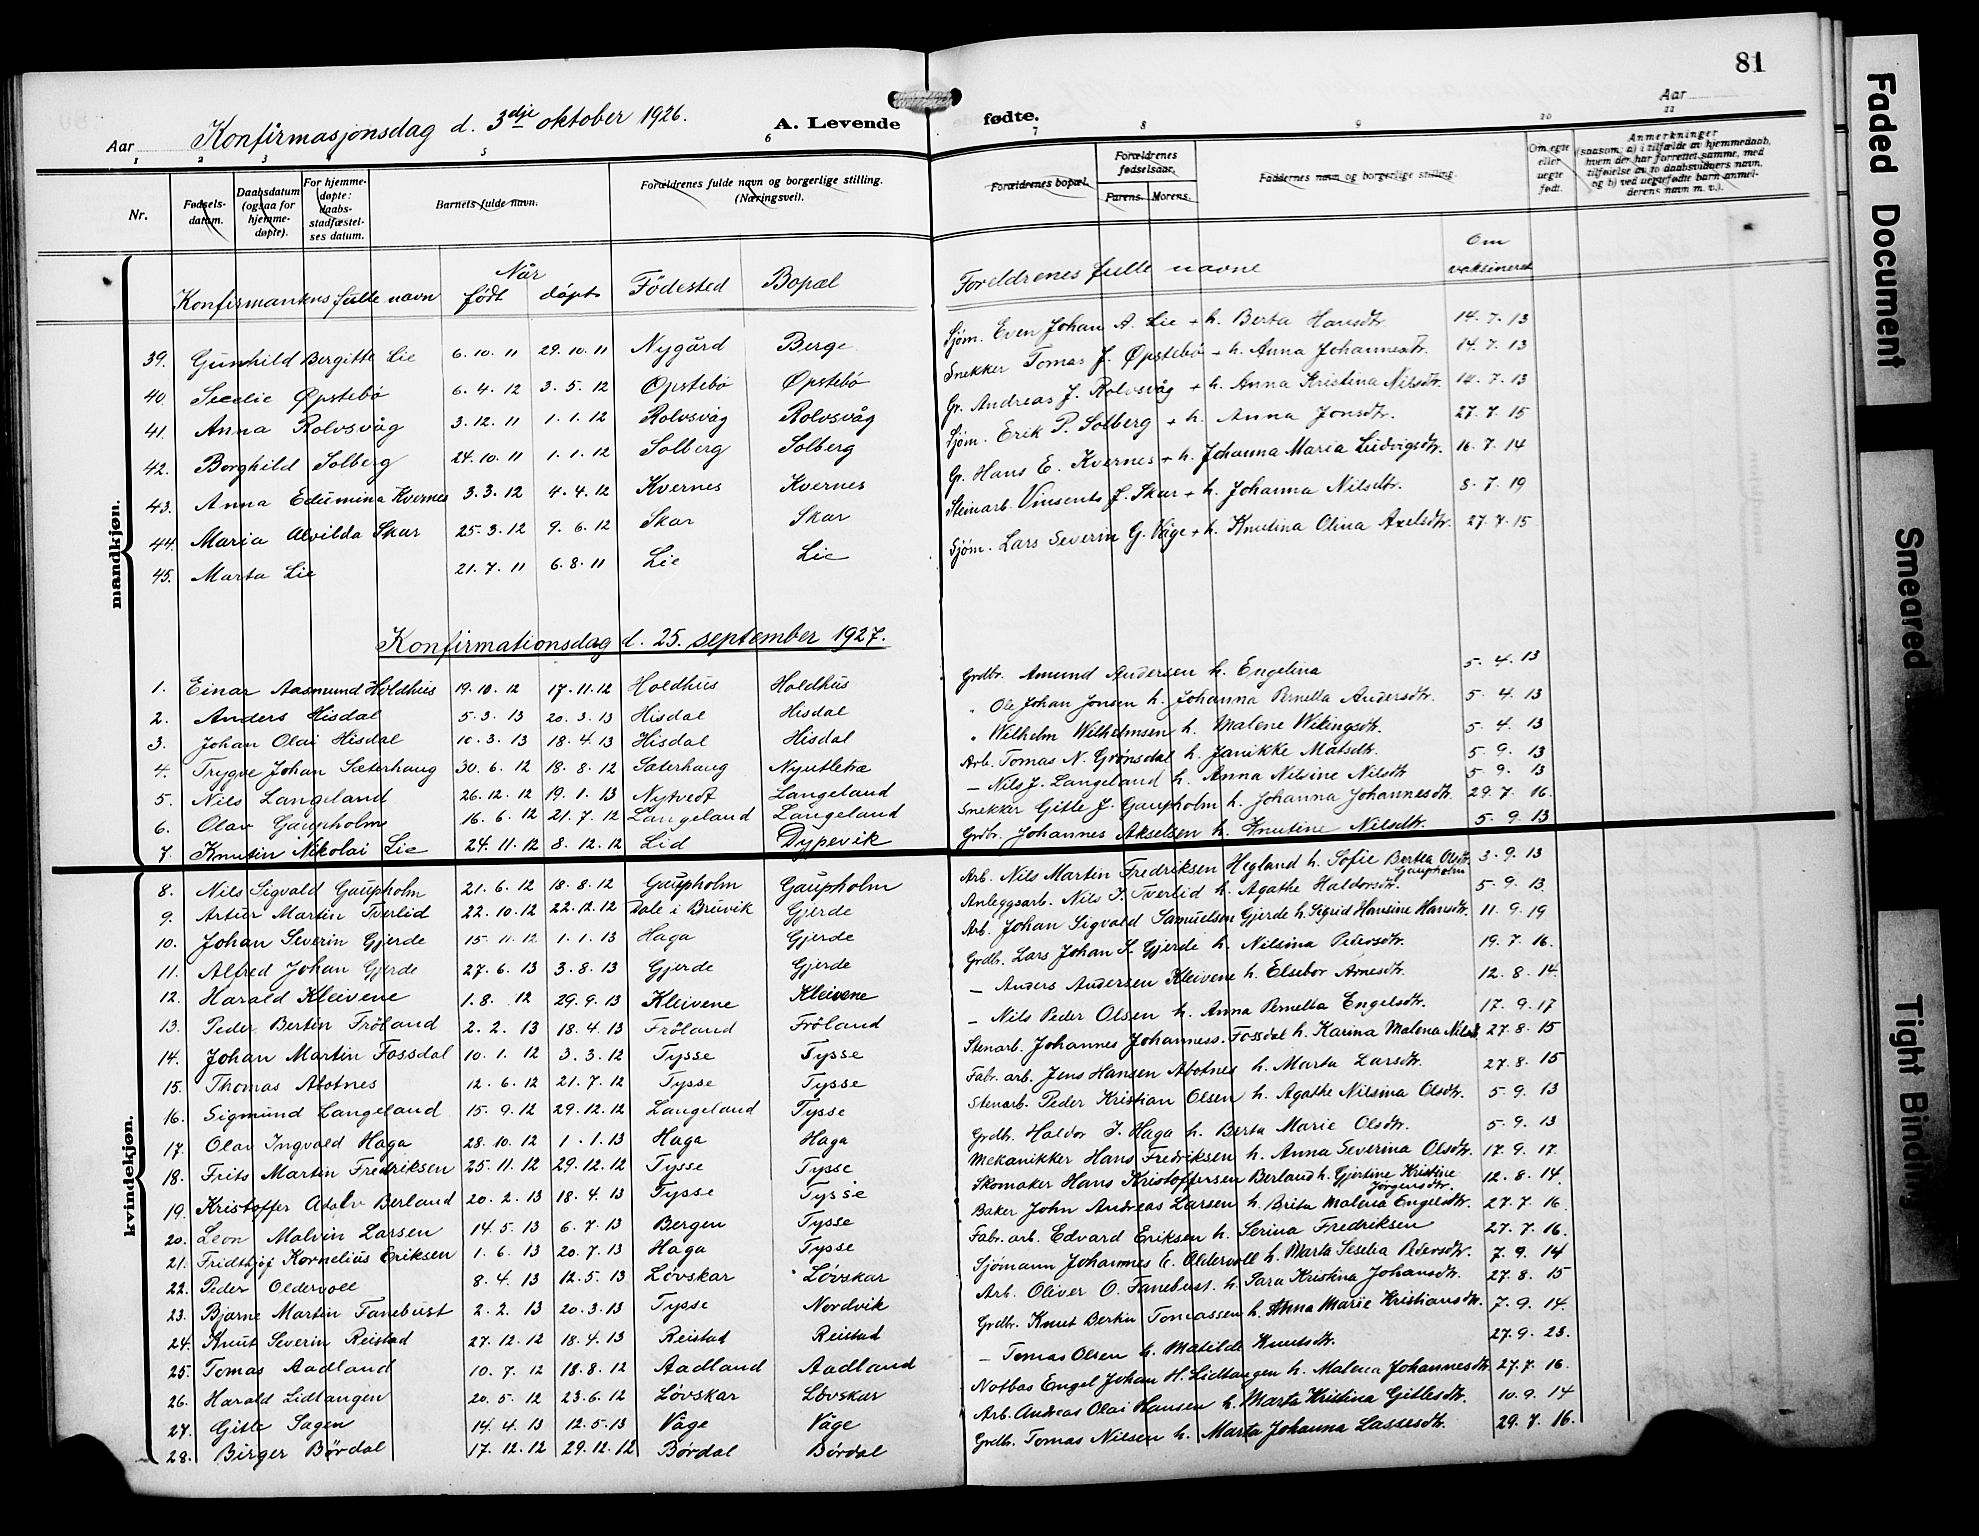 81
Aar Konfirmasjonsdag d. 3dje oktober 1926. A. Levende fødte. Aar
1 2 3 4 5 6 7 8 9 10 22
Nr. Fødsels-datum. Daabsdatum (ogsaa for hjemme-døpte). For hjemme-døpte: daabs-stadfæstel-ses datum. Barnets fulde navn. Forældrenes fulde navn og borgerlige stilling. (Næringsvei). Forældrenes bopæl. Forældrenes fødselsaar. Farens. Morens. Faddernes navn og borgerlige stilling. Om egte eller uegte født. Anmerkninger (saasom: a) i tilfælde av hjemmedaab, hvem der har forrettet samme, med tilføielse av to daabsvidners navn, og b) ved uegtefødte barn anmel-derens navn m. v.).
Konfirmantens fulle navn Når født døpt Födested Bopæl Foreldrenes fulle navne Om vaksineret
mandkjøn.
39. Gunhild Bergitte Lie 6.10.11 29.10.11 Nygård Berge Sjøm. Even Johan A. Lie + h. Berta Hansdtr. 14.7.13
40. Secelie Øpstebö 6.4.12 3.5.12 Øpstebö Øpstebö Snekker Tomas J. Øpstebö + h. Anna Johannesdtr. 14.7.13
41. Anna Rolvsvåg 3.12.11 1.1.12 Rolvsvåg Rolvsvåg Gr. Andreas J. Rolvsvåg + h. Anna Kristina Nilsdtr. 14.7.13
42. Borghild Solberg 24.10.11 1.1.12 Solberg Solberg Sjøm. Erik P. Solberg + h. Anna Jonsdtr. 27.7.15
43. Anna Edumina Kvernes 3.3.12 4.4.12 Kvernes Kvernes Gr. Hans E. Kvernes + h. Johanna Maria Ludvigsdtr. 16.7.14
44. Maria Alvilda Skar 25.3.12 9.6.12 Skar Skar Steinarb. Vinsents J. Skar + h. Johanna Nilsdtr. 8.7.19
45. Marta Lie 21.7.11 6.8.11 Lie Lie Sjøm. Lars Severin G. Våge + h. Knutina Olina Axelsdtr. 27.7.15
Konfirmationsdag d. 25. september 1927.
1. Einar Aasmund Holdhus 19.10.12 17.11.12 Holdhus Holdhus Grdbr. Amund Andersen h. Engelina 5.4.13
2. Anders Hisdal 5.3.13 20.3.13 Hisdal Hisdal " Ole Johan Jonsen h. Johanna Pernella Andersdtr. 5.4.13
3. Johan Olai Hisdal 10.3.13 18.4.13 Hisdal Hisdal " Wilhelm Wilhelmsen h. Malene Wikingsdtr. 5.4.13
4. Trygve Johan Sæterhaug 30.6.12 18.8.12 Sæterhaug Nyutletræ Arb. Tomas N. Grønsdal h. Janikke Matsdtr. 5.9.13
5. Nils Langeland 26.12.12 19.1.13 Nytvedt Langeland — Nils J. Langeland h. Anna Nilsine Nilsdtr 5.9.13
6. Olav Gaupholm 16.6.12 21.7.12 Langeland Langeland Snekker Gitle J. Gaupholm h. Johanna Johannesdtr. 29.7.16
7. Knutin Nikolai Lie 24.11.12 8.12.12 Lid Dypevik Grdbr. Johannes Akselsen h. Knutine Nilsdtr. 5.9.13
kvindekjøn.
8. Nils Sigvald Gaupholm 21.6.12 18.8.12 Gaupholm Gaupholm Arb. Nils Martin Fredriksen Hegland h. Sofie Bertea Olsdtr. Gaupholm 3.9.13
9. Artur Martin Tverlid 22.10.12 22.12.12 Dale i Bruvik Gjerde Anleggsarb. Nils I. Tverlid h. Agathe Haldorsdtr. 5.9.13
10. Johan Severin Gjerde 15.11.12 1.1.13 Haga Gjerde Arb. Johan Sigvald Samuelsen Gjerde h. Sigrid Hansine Hansdtr. 11.9.19
11. Alfred Johan Gjerde 27.6.13 3.8.13 Gjerde Gjerde Grdbr. Lars Johan S. Gjerde h. Nilsina Pedersdtr. 19.7.16.
12. Harald Kleivene 1.8.12 29.9.13 Kleivene Kleivene — Anders Andersen Kleivene h. Elsebor Arnesdtr. 12.8.14.
13. Peder Bertin Fröland 2.2.13 18.4.13 Fröland Fröland — Nils Peder Olsen h. Anna Pernella Engelsdtr. 17.9.17
14. Johan Martin Fossdal 10.1.12 3.3.12 Tysse Tysse Stenarb. Johannes Johanness. Fossdal h. Karina Malena Nilsd. 27.8.15
15. Thomas Abotnes 12.6.12 21.7.12 Tysse Tysse Fabr. arb. Jens Hansen Abotnes h. Marta Larsdtr. 27.8.15
16. Sigmund Langeland 15.9.12 29.12.12 Langeland Tysse Stenarb. Peder Kristian Olsen h. Agathe Nilsina Olsdtr. 5.9.13
17. Olav Ingvald Haga 28.10.12 1.1.13 Haga Haga Grdbr. Haldor I. Haga h. Berta Marie Olsdtr. 5.9.13
18. Frits Martin Fredriksen 25.11.12 29.12.12 Tysse Tysse Mekanikker Hans Fredriksen h. Anna Severina Olsdtr. 17.9.17.
19. Kristoffer Adolv Berland 20.2.13 18.4.13 Tysse Tysse Skomaker Hans Kristoffersen Berland h. Gjertine Kristine Jörgensdtr. 12.8.14.
20. Leon Malvin Larsen 14.5.13 6.7.13 Bergen Tysse Baker John Andreas Larsen h. Brita Malena Engelsdtr. 27.7.16.
21. Fridthjof Kornelius Eriksen 1.6.13 20.7.13 Haga Tysse Fabr. arb. Edvard Eriksen h. Serina Fredriksen 27.7.16.
22. Peder Oldervoll 8.4.13 12.5.13 Løvskar Løvskar Sjömann Johannes E. Oldervoll h. Marta Seselia Pedersdtr. 7.9.14
23. Bjarne Martin Fanebust 2.2.13 20.3.13 Tysse Nordvik Arb. Oliver O. Fanebust. h. Sara Kristina Johansdtr. 27.8.15
24. Knut Severin Reistad 27.12.12 18.4.13 Reistad Reistad Grdbr. Knut Bertin Tomassen h. Anna Marie Kristiansdtr. 7.9.14.
25. Tomas Aadland 10.7.12 18.8.12 Aadland Aadland — Tomas Olsen h. Matilde Knutsdtr. 27.9.23.
26. Harald Lidtangen 20.5.12 23.6.12 Løvskar Løvskar Notbas Engel Johan H. Lidtangen h. Malena Johannesdtr. 27.7.16.
27. Gitle Sagen 14.4.13 12.5.13 Våge Våge Arb. Andreas Olai Hansen h. Marta Kristina Gitlesdtr. 10.9.14
28. Birger Børdal 17.12.12 29.12.12 Børdal Børdal Grdbr. Tomas Nilsen h. Marta Johanna Lassesdtr. 29.7.16.
Faded Document
Smeared
Tight Binding